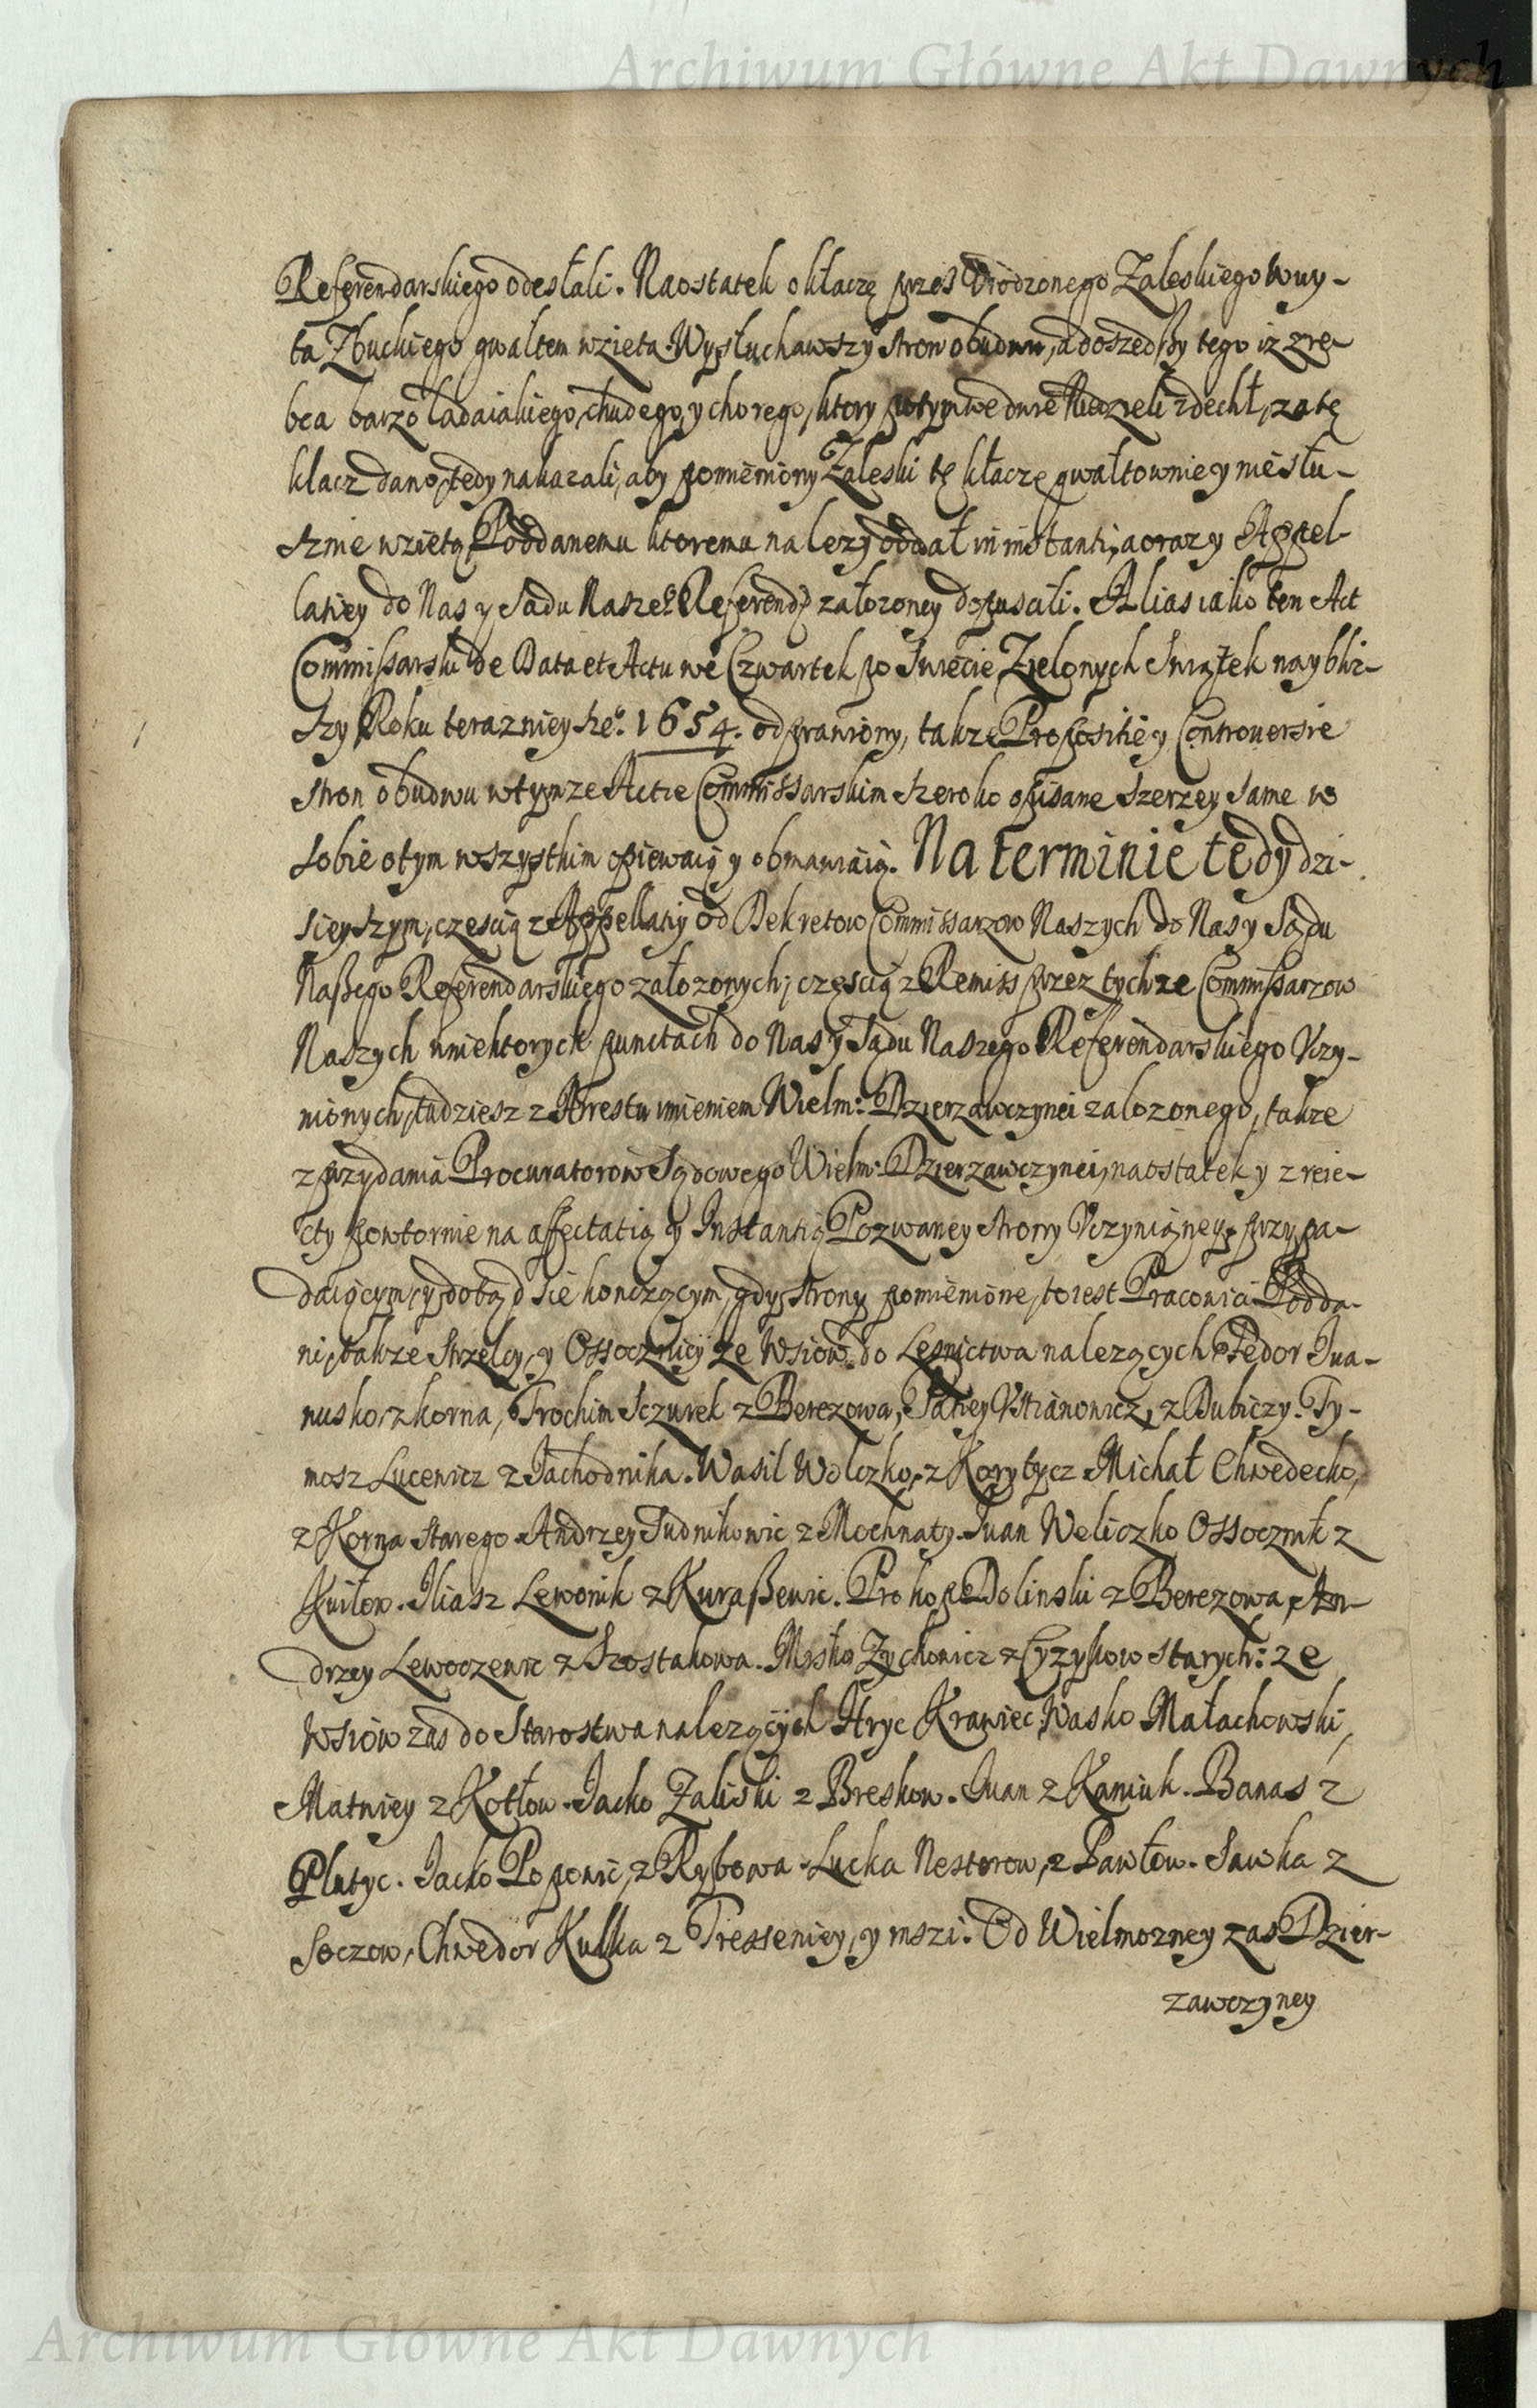 Archiwum Główne Akt Dawnych
Referendarskiego odesłali. Naostatek o kłaczę przes Vrodzonego Zaleskiego wuy-
ta Zbuckiego gwałtem wzieta. Wysłuchawszy stron obudwu, a doszedszy tego iz zre-
bca barzo ladaiakiego, chudego, y chorego, ktory potym we dwie Niedzieli zdechł, za tę
klacz dano, tedy nakazali, aby pomieniony Zaleski tę kłaczę gwałtownie y niesłu-
sznie wziętą Poddanemu ktoremu nalezy oddał in instanti, a oraz y Appel-
latiey do Nas y Sądu Nasze° Referend: załozoney dopuscili. Alias iako ten Act
Commissarski de Data et Actu we Czwartek po Swiecie Zielonych Swiątek naybliz-
szy Roku teraznieysze°. 1654. odprawiony, takze Propositie y Controuersie
stron obudwu w tymze Actie Commissarskim szeroko opisane szerzey same w
sobie o tym wszystkim opiewaią y obmawiaią. Na terminie tedy dzi-
sieyszym, czescią z Appellatiy od Dekretow Commissarzow Naszych do Nas y Sądu
Naszego Referendarskiego załozonych; częscią z Remiss przez tychze Commissarzow
Naszych w niektorych punctach do Nas y Sądu Naszego Referendarskiego Vczy-
nionych, tudziesz z Arestu imieniem Wielm: Dzierzawczynei załozonego, takze
z przydania Procuratorow Sądowego Wielm: Dzierzawczynei, naostatek y z reie-
cty powtornie na affectatią y Instantią Pozwaney strony Vczynioney, przypa-
daiącym, y dotąd sie konczącym, gdy strony pomienione, to iest Pracowici Podda-
ni, takze Strzelcy, y Ossocznicy ze Wsiow do Lesnictwa nalezących Fedor Iwa-
nusko, z korna, Trochim Sczurek z Berezowa, Paciey Vstianowicz, z Dubiczy. Ty-
mosz Lucewicz z Jachodnika. Wasil Wolczko, z Korytycz Michał Chwedecko,
z Korna Starego Andrzey Sudnikowic z Mochnaty. Iwan Weliczko Ossocznik z
Kuiłow. Iliasz Lewonik z Kuraszewic. Prokop Dolinski z Berezowa, An-
drzey Lewoczewic z Szostakowa. Misko Zychowicz z Czyzykow starych: ze
Wsiow zas do Starostwa nalezących Hryc Krawiec, Wasko Małachowski,
Matwiey z Kotłow. Jacko Zaliski z Breskow. Iwan z Kaniuk. Banas z
Plutyc. Jacko Popowic, z Rybowa. Lucka Nesterow, z Pawłow. Sawka z
Soczow, Chwedor Kulka z Tresseniey, y inszi. Od Wielmozney zas Dzier-
zawczyney
Archiwum Główne Akt Dawnych